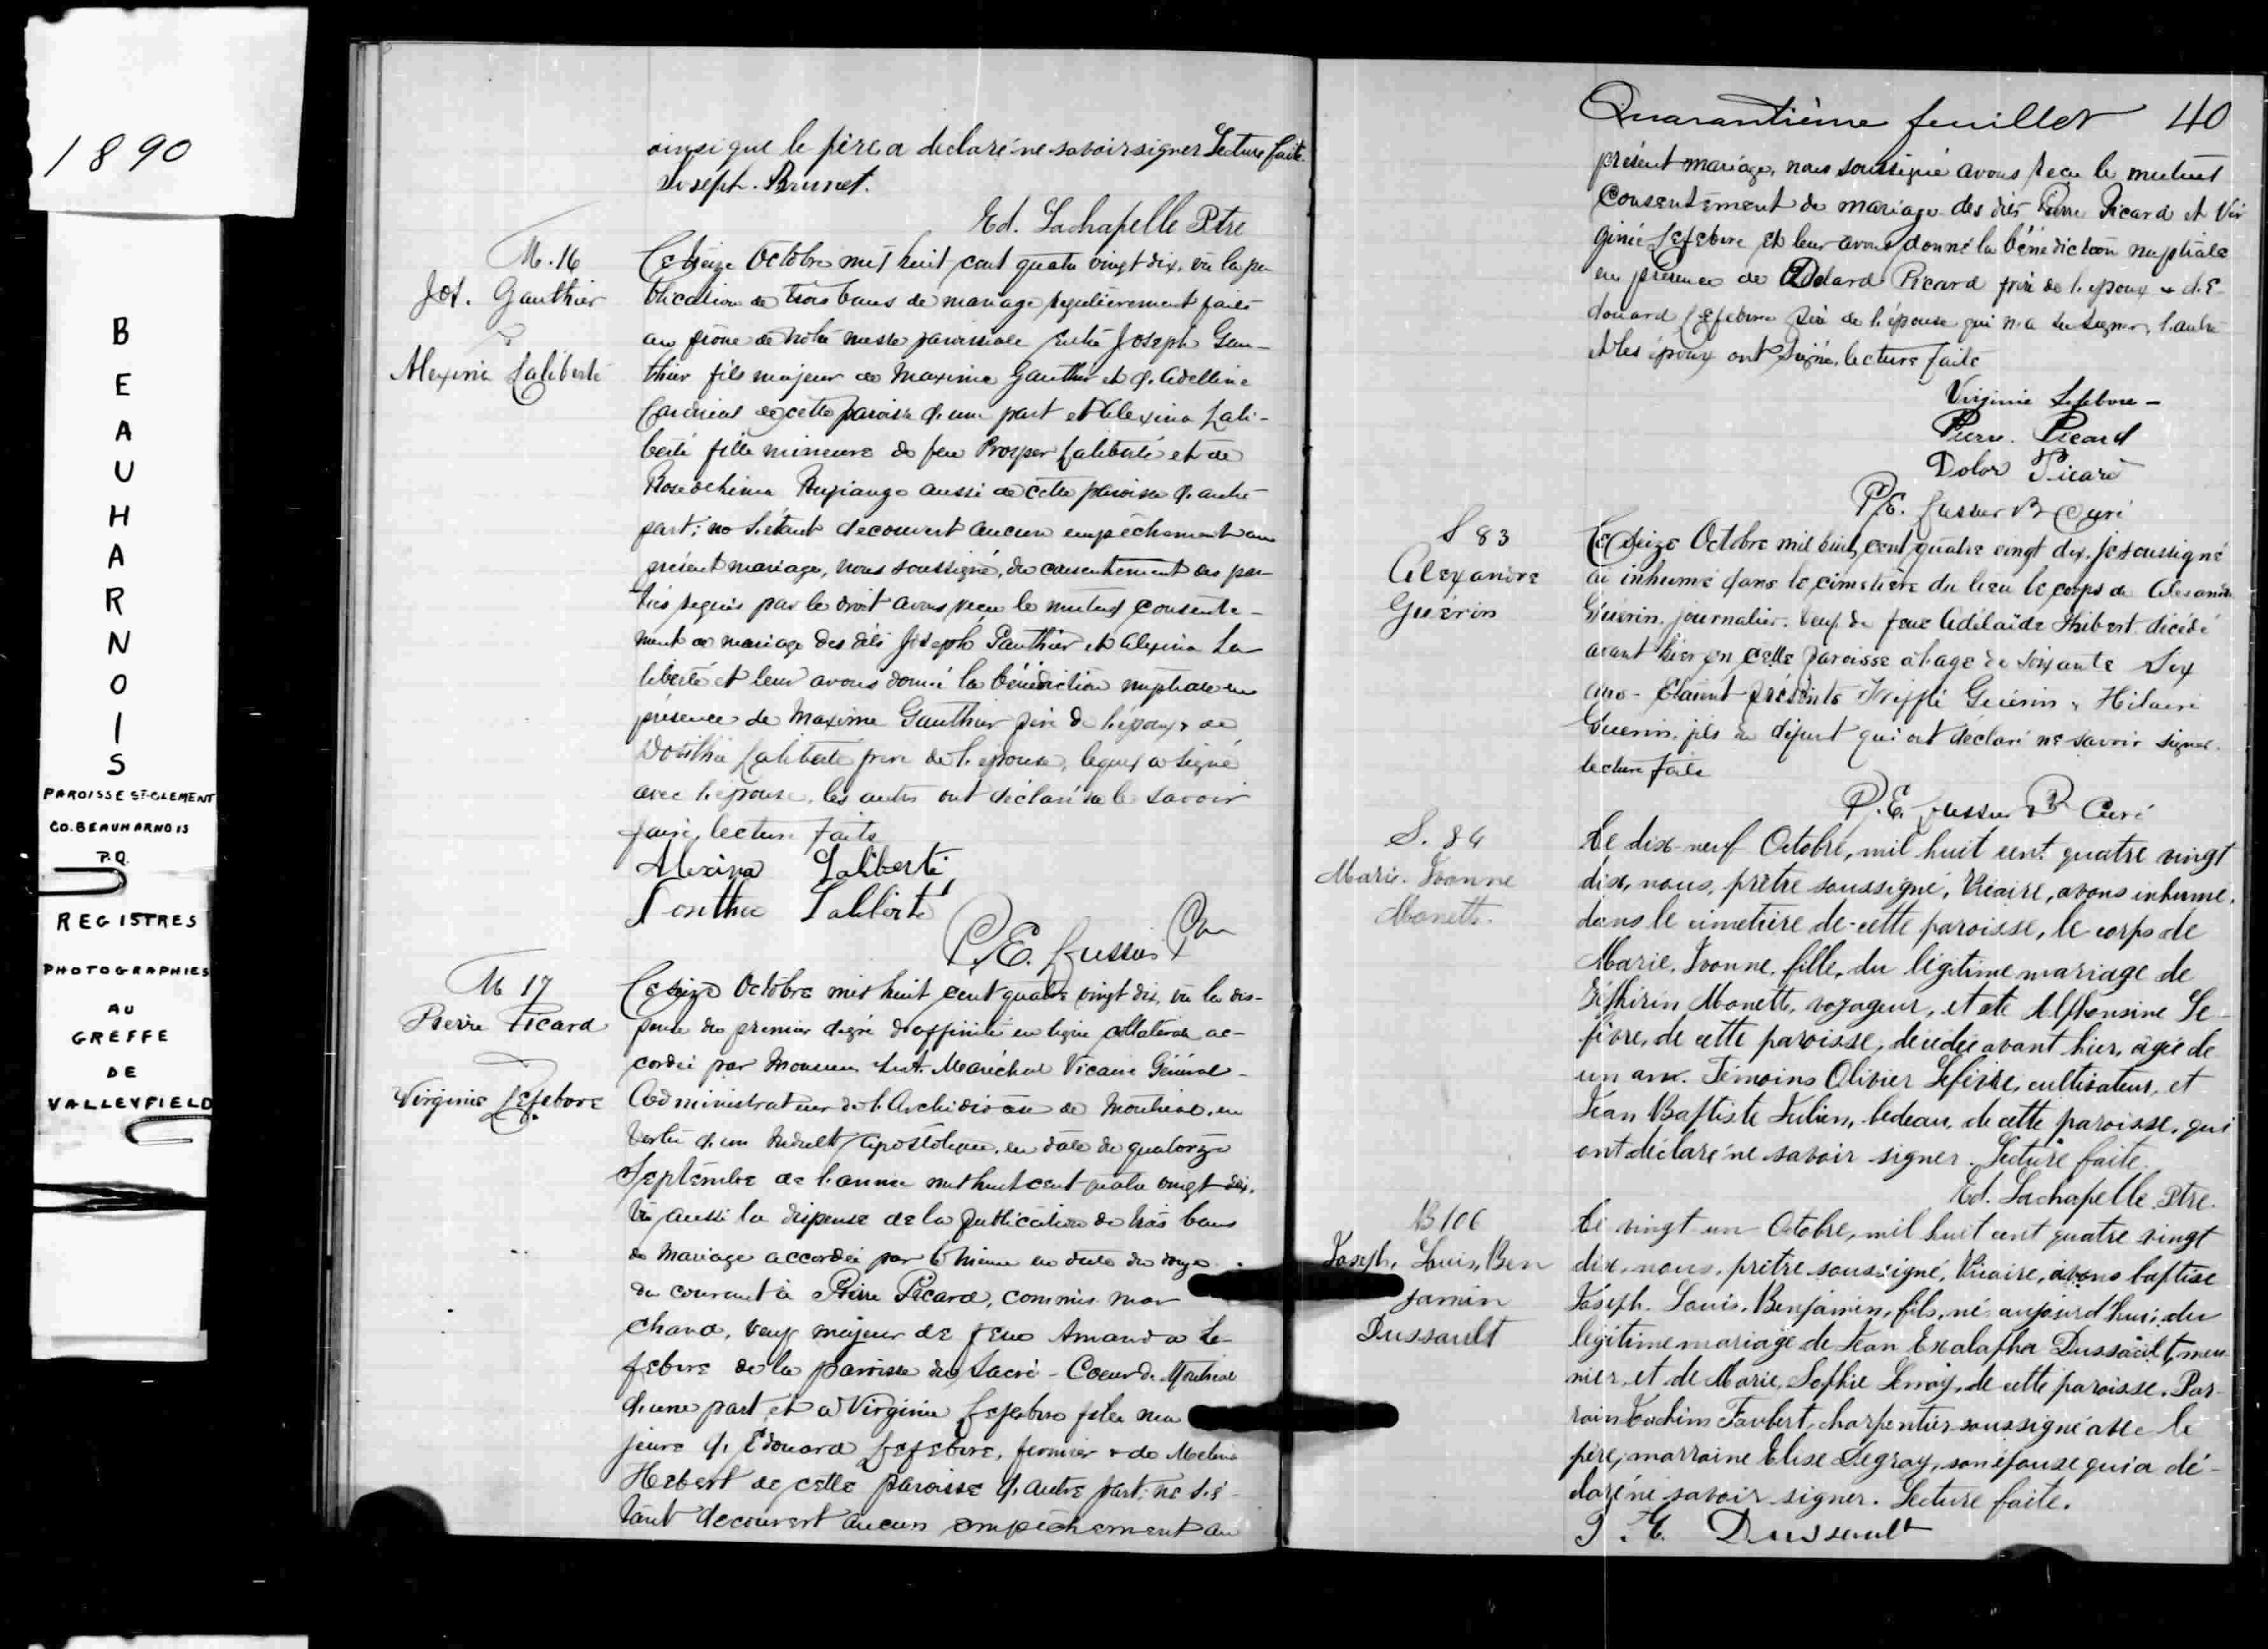 1890
BEAUHARNOIS
PAROISSE ST-CLEMENT
CO. BEAUHARNOIS
P.Q.
REGISTRES
PHOTOGRAPHIES
AU
GREFFE
DE
VALLEYFIELD
ainsi que le père a déclaré ne savoir signer Lecture faite.
Joseph. Brunet.
Ed. Lachapelle Ptre
M. 16
Jos. Gauthier
&
Alexina Laliberté
Ce seize Octobre mil huit cent quatre vingt dix, vu la pu-
blication de trois bans de mariage régulièrement faite
au prône de notre messe paroissiale entre Joseph Gau-
thier fils majeur de Maxime Gauthier et d'Adelline
Cardinal de cette paroisse d'une part et Alexina Lali-
berté fille mineure de feu Prosper Laliberté et de
aussi de cette paroisse d'autre
part; ne s'étant découvert aucun empêchement au
présent mariage, nous soussigné, du consentement des par-
ties requis par le droit avons reçu le mutuel consente-
ment de mariage des dits Joseph Gauthier et Alexina La
liberté et leur avons donné la bénédiction nuptiale en
présence de Maxime Gauthier père de l'époux & de
Dosithé Laliberté frère de l'épouse, lequel a signé
avec l'épouse, les autres ont déclaré ne le savoir
faire, lecture faite
Alexina Laliberté
Dosithé Laliberté
P.E. Lussier
M 17
Pierre Picard
&
Virginie Lefebvre
Ce seize Octobre mil huit cent quatre vingt dix, vu la dis-
pense du premier degré d'affinité en ligne collatérale ac-
cordée par Monsieur Maréchal Vicaire Général
Administrateur de l'Archidiocèse de Montréal, en
vertu d'un Indult Apostolique, en date du quatorze
Septembre de l'année mil huit cent quatre vingt dix.
Vu aussi la dispense de la publication de trois bans
de mariage accordée par le même en date du
du courant à Pierre Picard, commis mar
chand, veuf majeur de feue Amanda Le-
febvre de la paroisse du Sacré-Coeur de Montréal
d'une part, et à Virginie Lefebvre fille ma
jeure d'Edouard Lefebvre, fermier & de Melina
Hébert de cette paroisse d'autre part; ne s'é-
tant découvert aucun empêchement au
Quarantième feuillet 40
présent mariage, nous soussigné avons reçu le mutuel
consentement de mariage des dits Pierre Picard et Vir
ginie Lefebvre et leur avons donné la bénédiction nuptiale
en présence de Picard frère de l'époux & d'E-
douard Lefebvre père de l'épouse qui n'a su signer, l'autre
et les époux ont signé, lecture faite
Virginie Lefebvre -
Pierre. Picard
Dolor Picard
P.E. Lussier Ptre Curé
S 83
Alexandre
Guérin
Ce seize Octobre mil huit cent quatre vingt dix, je soussigné
ai inhumé dans le cimetière du lieu le corps de Alexandre
Guérin, journalier, veuf de feue Adélaïde Hébert, décédé
avant hier en cette paroisse à l'âge de soixante six
ans - Étaient présents Trefflé Guérin & Hilaire
Guérin, fils du défunt qui ont déclaré ne savoir signer.
lecture faite
P.E. Lussier Ptre Curé
S. 84
Marie-Ivonne
Monette.
Le dix-neuf Octobre, mil huit cent quatre vingt
dix, nous, prêtre soussigné, Vicaire, avons inhumé,
dans le cimetière de cette paroisse, le corps de
Marie, Ivonne, fille, du légitime mariage de
Zéphirin Monette, voyageur, et de Alphonsine Le-
fèvre, de cette paroisse, décédée avant hier, agée de
un an. Témoins Olivier Lefèvre, cultivateur, et
Jean Baptiste Julien, bedeau, de cette paroisse, qui
ont déclaré ne savoir signer. Lecture faite.
Ed. Lachapelle Ptre.
B 106
Joseph, Louis, Ben
jamin
Dussault
Le vingt-un Octobre, mil huit cent quatre vingt
dix, nous, prêtre soussigné, Vicaire, avons baptisé
Joseph. Louis. Benjamin, fils, né aujourd'hui, du
légitime mariage de Jean Dussault, meu-
nier, et de Marie, Sophie Lemay, de cette paroisse. Par-
rain Joachim Faubert, charpentier soussigné avec le
père; marraine Elise Legray, son épouse qui a dé-
claré ne savoir signer. Lecture faite.
J. E. Dussault